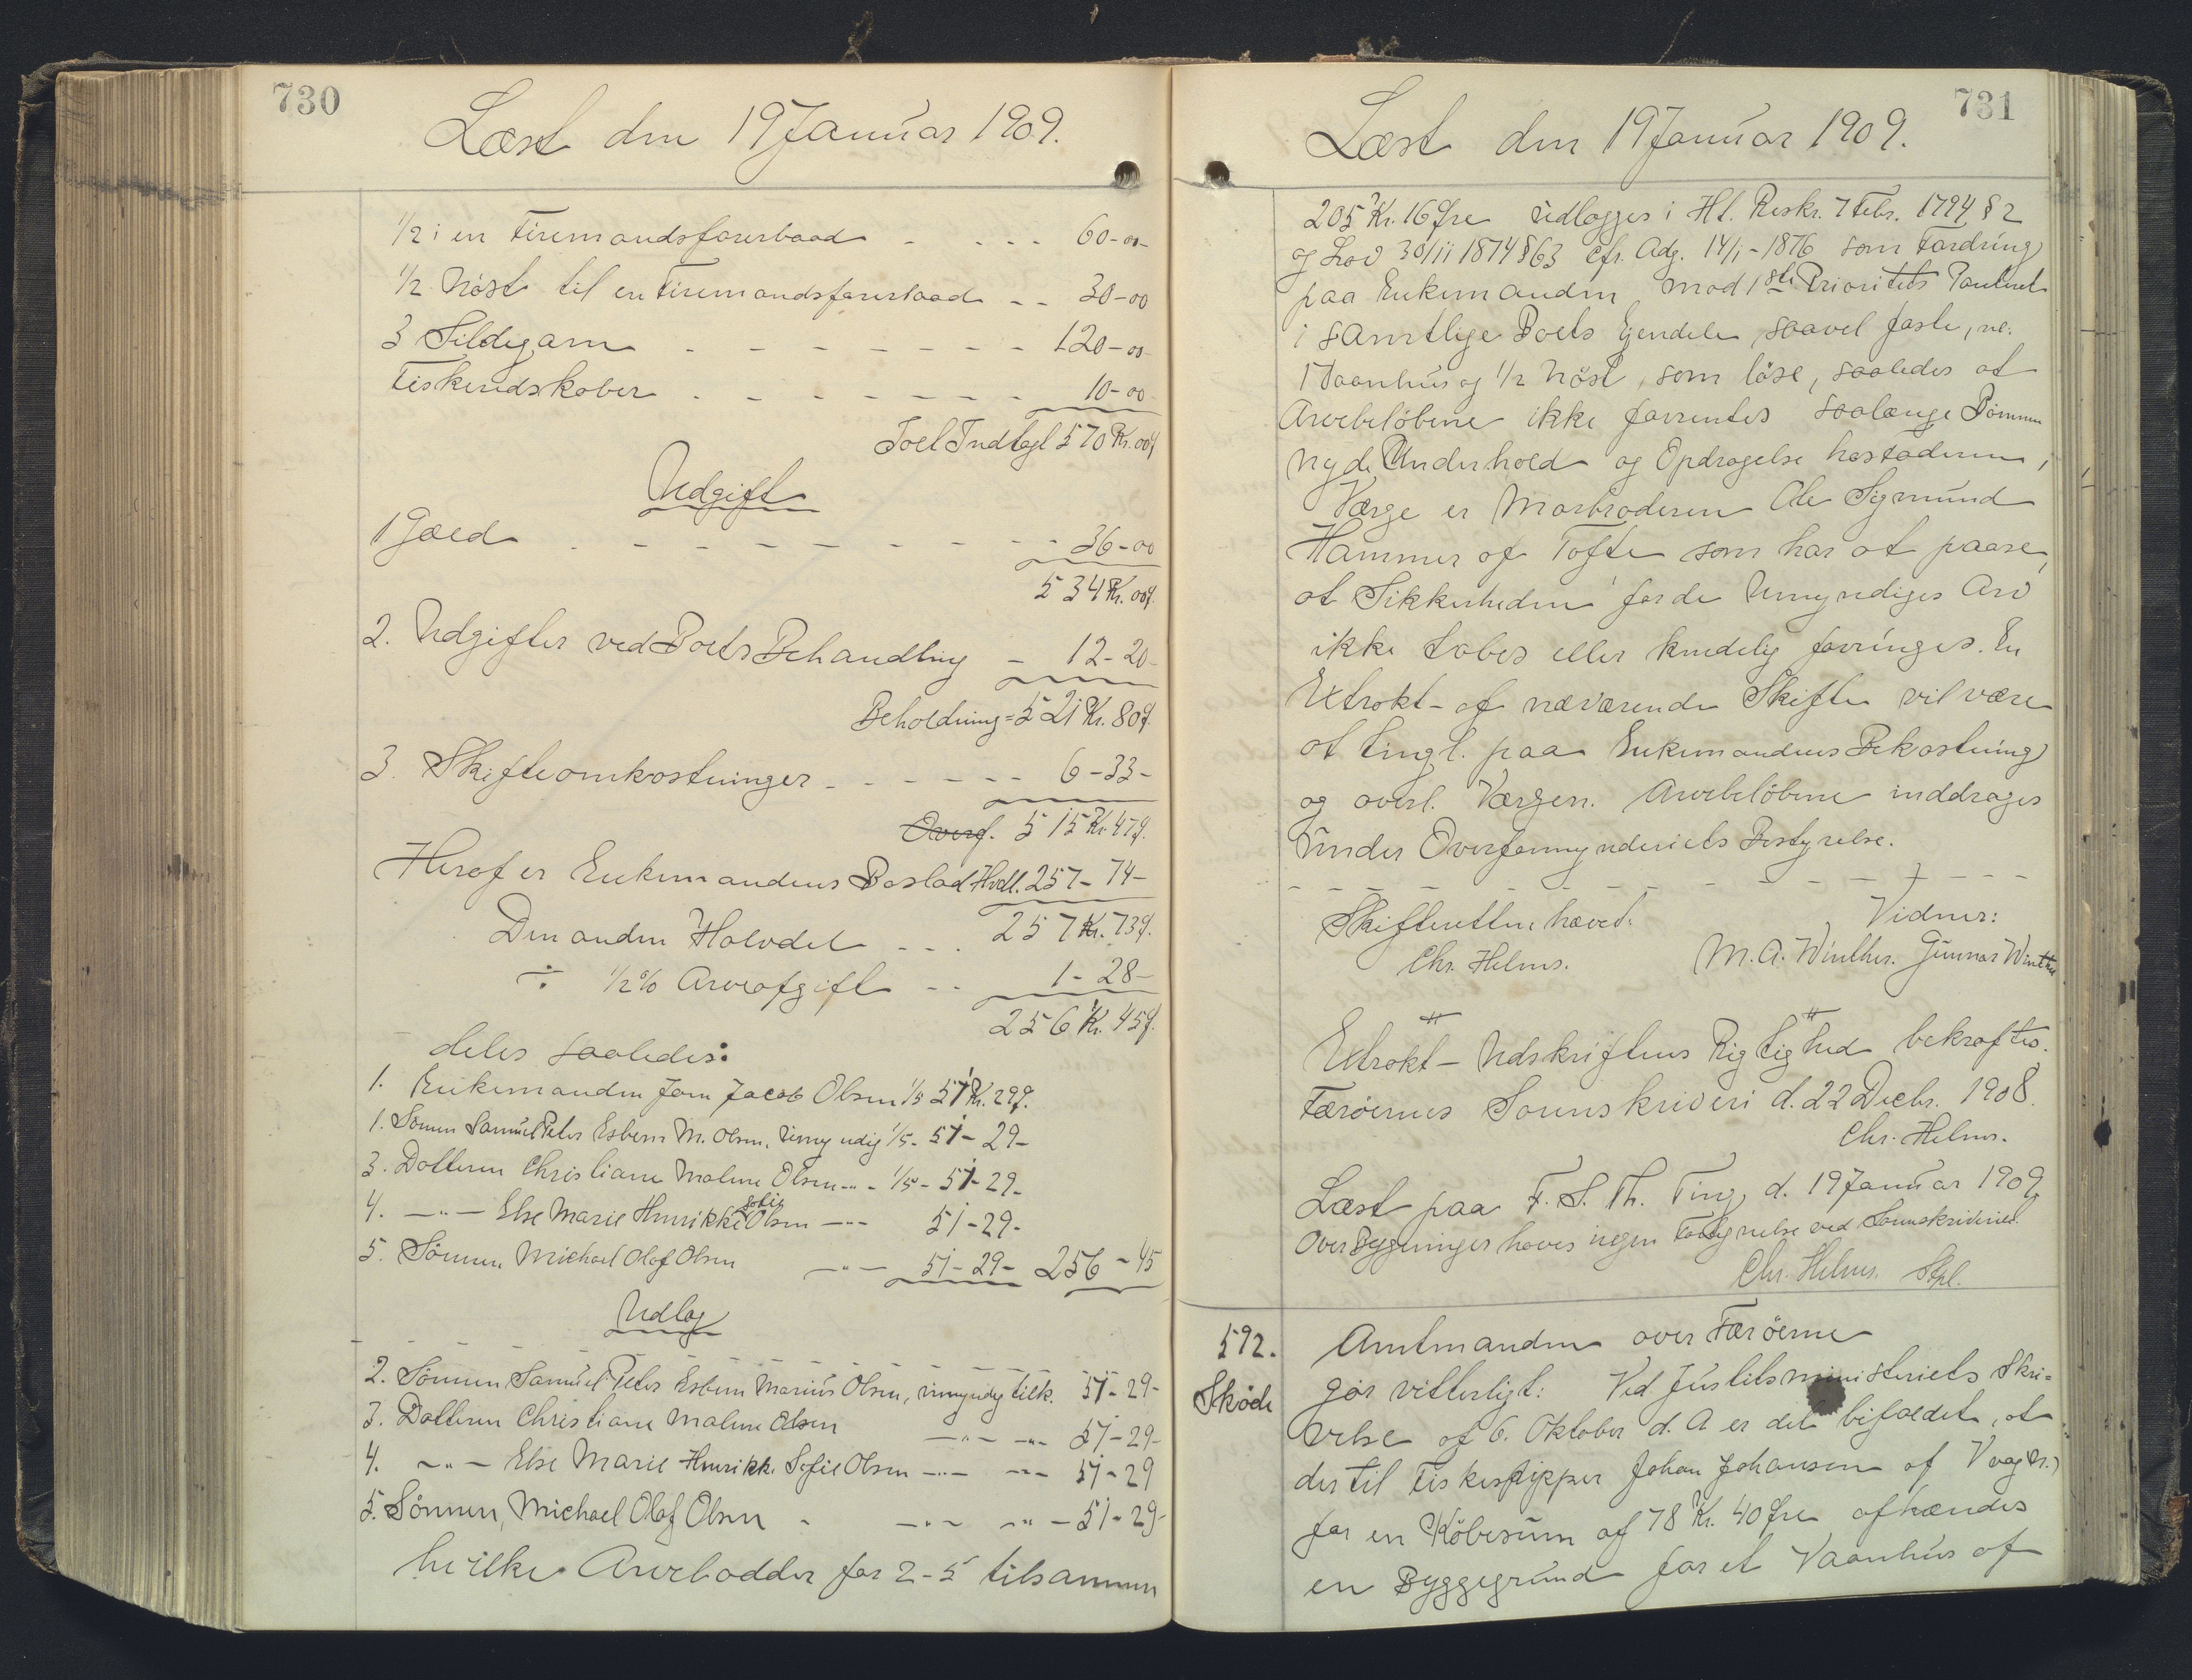 730
Læst den 19 Januar 1909.
1/2 i en Firemandsfarerbaad - - - - 60-00-
1/2 Nöst til en Firemandsfarerbaad - - 30-00
3 Sildegarn - - - - - - - 120-00-
Fiskeredskaber - - - - - - - 10-00
Indtægt 570 Kr. 00 ø
Udgift
1 Gæld - - - - - - - - - 36-00
534 Kr. 00 ø.
2. Udgifter ved Boets Behandling - 12-20-
Beholdning = 521 Kr. 80 ø.
3. Skifteomkostninger - - - - - - 6-33-
Overf. 515 Kr. 47 ø.
Heraf er Enkemandens Boslod Hvdl. 257-74-
Den anden Halvdel - - - 257 Kr. 73 ø.
÷ 1/2 % Arveafgift - - 1-28-
256 Kr. 45 ø.
deles saaledes:
1. Enkemanden Jacob Olsen 1/5 51 Kr. 29 ø.
1. Sönnen Samuel Peter Esbern M. Olsen, umyndig 1/5 - 51-29-
3. Datteren Christiane Malene Olsen -"- 1/5 - 51-29-
4. -"- Else Marie Henrikke Sofie Olsen -"- 51-29-
5. Sönnen Michael Olaf Olsen -"- 51-29- 256-45
Udlæg
- - - - - - - - - - - -
2. Sönnen Samuel Peter Esbern Marius Olsen, umyndig tilk. 51-29-
3. Datteren Christiane Malene Olsen -"- -"- 51-29-
4. -"- Else Marie Henrikke Sofie Olsen -"- -"- 51-29
5. Sönnen, Michael Olaf Olsen - -"- -"- 51-29-
hvilke Arvelodder for 2-5 tilsammen
731
Læst den 19 Januar 1909.
205 Kr. 16 Øre udlægges i Hl. Reskr. 7 Febr. 1794 § 2
og Lov 30/11 1874 § 63 cfr. Adg. 14/1-1876 som Fordring
paa Enkemanden mod 1ste Prioritets Panteret
i samtlige Boets Ejendele saavel faste, ne:
1 Vaanhus og 1/2 Nöst, som löse, saaledes at
Arvebelöbene ikke forrentes saalænge Börnene
nyde Underhold og Opdragelse hos Faderen,
Værge er Morbroderen Ole Sigmund
Hammer af Tofte som har at paase,
at Sikkerheden for de Umyndiges Arv
ikke tabes eller kendelig forringes. En
Extrakt- af nærværende Skifte vil være
at tingl. paa Enkemandens Bekostning
og overl. Værgen. Arvebelöbene inddrages
under Overformynderiets Bestyrelse.
- - - - - - - - - - - - - - -
Skifteretten hævet. Vidner:
Chr. Helms. M. A. Winther. Gunnar Winther
Extrakt - Udskriftens Rigtighed bekræftes.
Færöernes Sorenskriveri d. 22 Decbr. 1908.
Chr. Helms.
Læst paa F. S. Th. Ting d. 19 Januar 1909.
Over Bygninger haves ingen Fortegnelse ved Sorenskriveriet.
Chr. Helms. Stpl.
592. Skøde
Amtmanden over Færöerne
gör vitterligt: Ved Justitsministeriets Skri=
velse af 6. Oktober d. A er det bifaldet, at
der til Fiskeskipper Johan Johansen af Vaag kr.)
for en Köbesum af 78 Kr. 40 Øre afhændes
en Byggegrund for et Vaanhus af